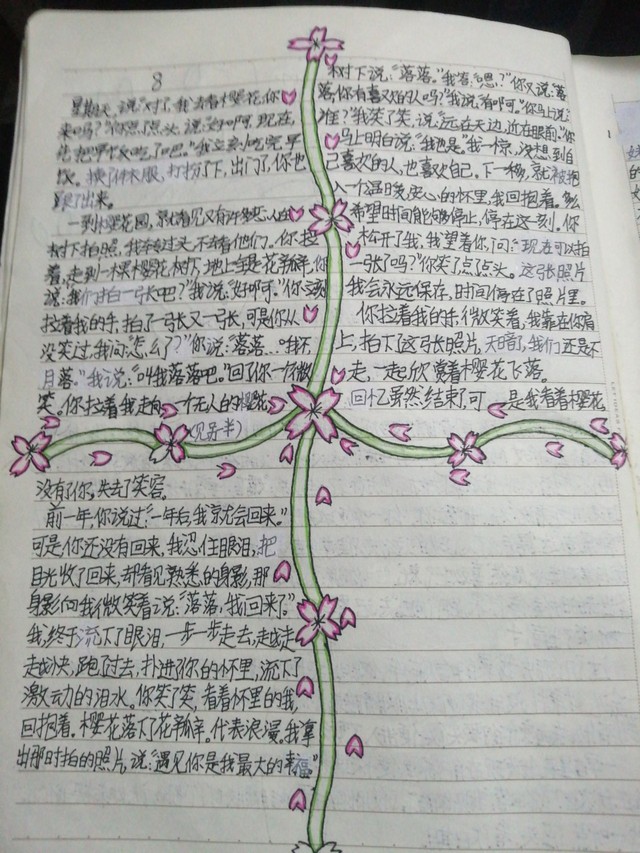 8
星期天，说："对了，我去看樱花，你
来吗？"你点了点头，说："好啊，现在
先把早饭吃了吧。"我立刻吃完早
饭。换了件衣服，打扮了下，出门了，你也
跟了出来。
一到樱花园，就看见又有许多恋人在
树下拍照，我转过头，不去看他们。你拉
着，走到一棵樱花树下，地上全是花瓣，你
说："我们拍一张吧？"我说："好啊。"你
拉着我的手，拍了一张又一张，可是你从
没笑过，我问："怎么了？"你说："落落…""我不
月落。"我说："叫我落落吧。"回了你一个微
笑。你拉着我走向一个无人的樱花
(见另半)
树下说："落落。"我答："嗯？"你又说："落
落，你有喜欢的人吗？"我说："有啊。"你马上说：
"谁？"我笑了笑，说："远在天边，近在眼前。"你
马上明白说："我也是。"我一惊，没想到自
己喜欢的人，也喜欢自己。下一秒，就被抱
入一个温暖，安心的怀里，我回抱着。多么
希望时间能够停止，停在这一刻。你
松开了我，我望着你，问："现在可以拍
一张了吗？"你笑了点了点头。这张照片
我会永远保存，时间停在了照片里。
你拉着我的手，微笑着，我靠在你肩
上，拍下了这张照片，天暗了，我们还是不
走，一起欣赏着樱花飞落。
回忆虽然结束了，可是我看着樱花
没有了你，失去了笑容。
前一年，你说过："一年后，我就会回来。"
可是你还没有回来，我忍住眼泪，把
目光收了回来，却看见熟悉的身影，那
身影向我微笑着说："落落，我回来了。"
我终于流下了眼泪，一步一步走去，越走
越快，跑了过去，扑进了你的怀里，流下了
激动的泪水。你笑了笑，看着怀里的我，
回抱着。樱花落下了花瓣。代表浪漫。我拿
出那时拍的照片，说："遇见你是我最大的幸福。"